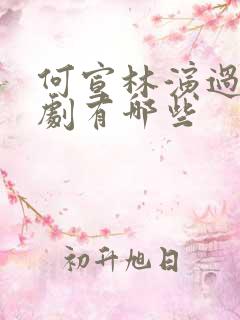 何宣林演過
劇有哪些
初升旭日